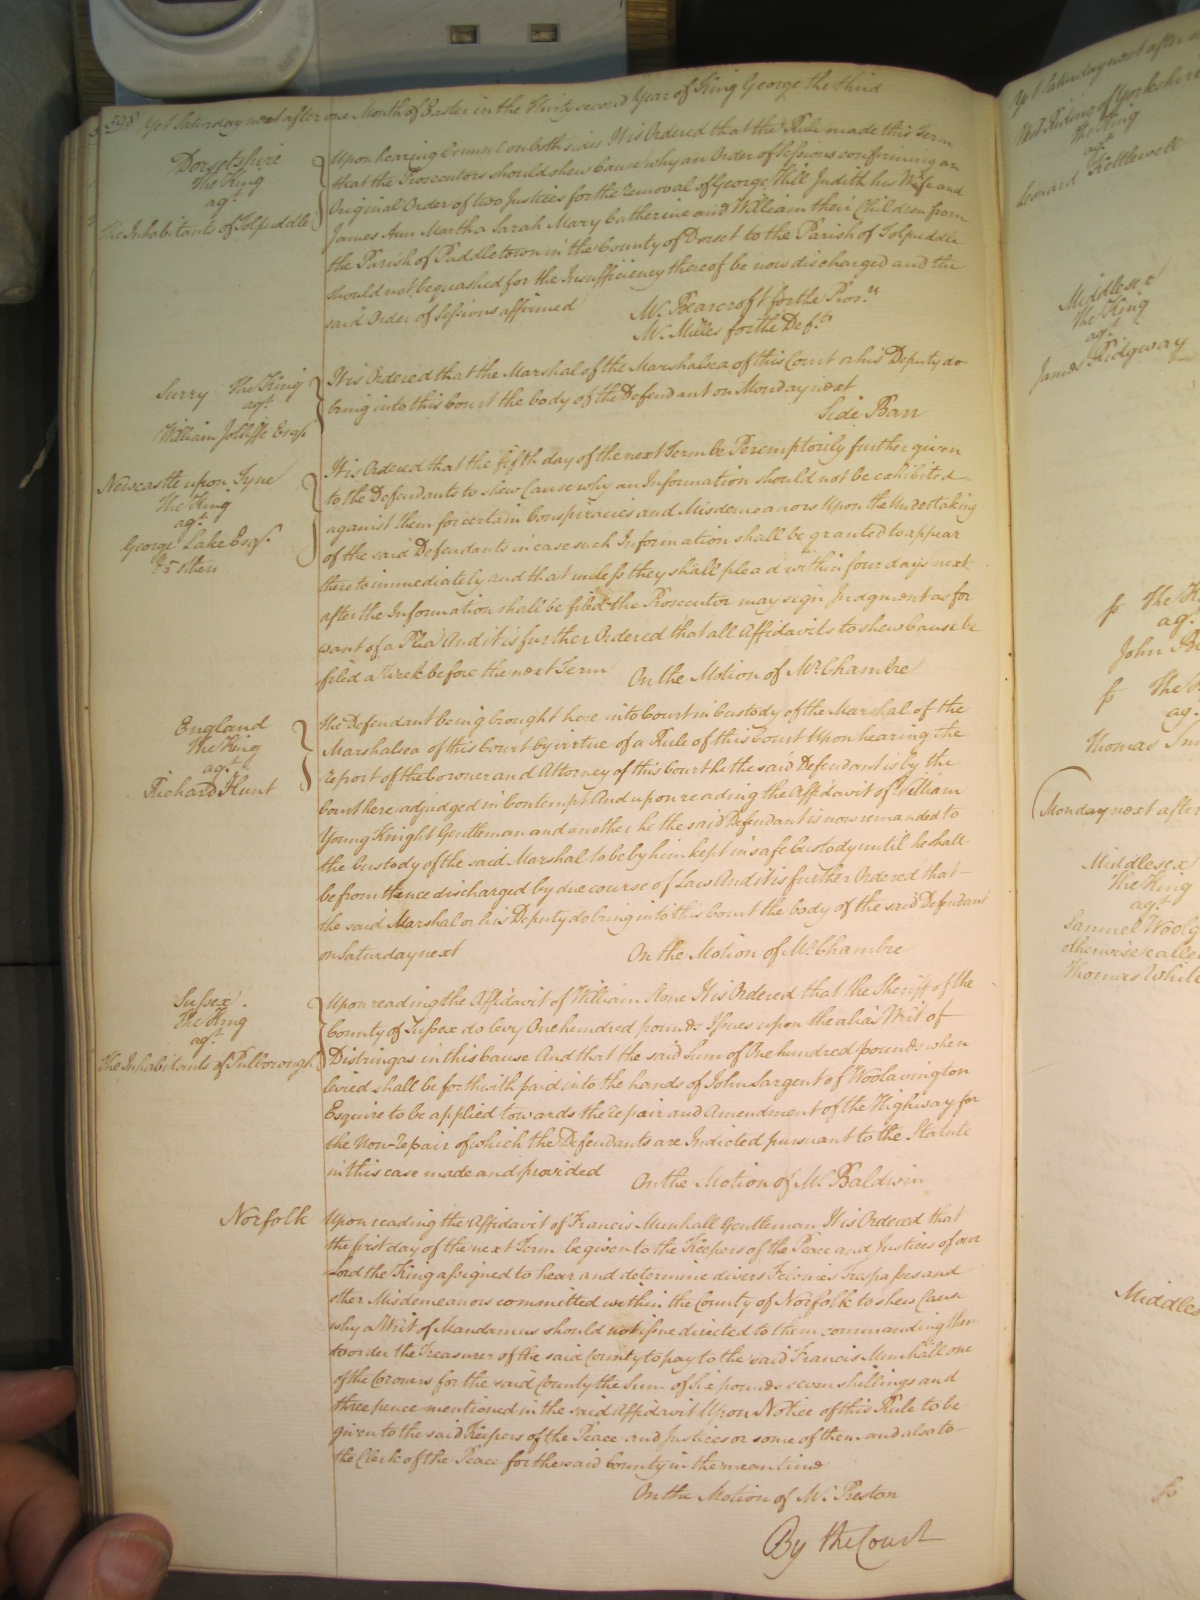 308 Yet Saturday next after one Month of Easter in the Thirty second Year of King George the third
Dorsetshire
The King
agt.
The Inhabitants of Tolpuddle
Upon hearing Counsel on both sides It is Ordered that the Rule made this Term
that the Prosecutors should shew Cause why an Order of Sessions confirming an
Original Order of two Justices for the removal of George Hill Judith his Wife and
James Ann Martha Sarah Mary Catherine and William their Children from
the Parish of Puddletown in the County of Dorset to the Parish of Tolpuddle
should not be quashed for the Insufficiency thereof be now discharged and the
said Order of Sessions affirmed
Mr. Bearcroft for the Pros.rs
Mr. Milles for the Def.ts
Surry The King
agt.
William Joliffe Esqr.
It is Ordered that the Marshal of the Marshalsea of this Court or his Deputy do
bring into this Court the body of the Defendant on Monday next
Side Barr
Newcastle upon Tyne
The King
agt.
George Lake Esqr.
& 5 others
It is Ordered that the fifth day of the next Term be Peremptorily further given
to the Defendants to shew Cause why an Information should not be exhibited
against them for certain Conspiracies and Misdemeanors Upon the Undertaking
of the said Defendants in case such Information shall be granted to appear
thereto immediately and that unless they shall plead within four days next
after the Information shall be filed the Prosecutor may sign Judgment as for
want of a Plea And it is further Ordered that all Affidavits to shew Cause be
filed a Week before the next Term
On the Motion of Mr. Chambre
England
The King
agt.
Richard Hunt
The Defendant being brought here into Court in Custody of the Marshal of the
Marshalsea of this Court by virtue of a Rule of this Court Upon hearing the
report of the Coroner and Attorney of this Court he the said Defendant is By the
Court here adjudged in Contempt And upon reading the Affidavit of William
Young Knight Gentleman and another he the said Defendant is now remanded to
the Custody of the said Marshal to be by him kept in safe Custody until he shall
be from thence discharged by due course of Law And it is further Ordered that
the said Marshal or his Deputy do bring into this Court the body of the said Defendant
on Saturday next
On the Motion of Mr. Chambre
Sussex
The King
agt.
The Inhabitants of Pulborough
Upon reading the Affidavit of William Stone It is Ordered that the Sheriff of the
County of Sussex do levy One hundred pounds Issues upon the alias Writ of
Distringas in this Cause And that the said Sum of One hundred pounds when
levied shall be forthwith paid into the hands of John Sargent of Woolavington
Esquire to be applied towards the repair and Amendment of the Highway for
the Non-repair of which the Defendants are Indicted pursuant to the Statute
in this case made and provided
On the Motion of Mr. Baldwin
Norfolk
Upon reading the Affidavit of Francis Munhall Gentleman It is Ordered that
the first day of the next Term be given to the Keepers of the Peace and Justices of our
Lord the King assigned to hear and determine divers Felonies Trespasses and
other Misdemeanors committed within the County of Norfolk to shew Cause
why a Writ of Mandamus should not issue directed to them commanding them
to order the Treasurer of the said County to pay to the said Francis Munhall one
of the Coroners for the said County the Sum of Six pounds seven shillings and
three pence mentioned in the said Affidavit Upon Notice of this Rule to be
given to the said Keepers of the Peace and Justices or some of them and also to
the Clerk of the Peace for the said County in the mean time
On the Motion of Mr. Preston
By the Court
Yet Saturday next after
West Riding of Yorkshire
The King
agt.
Leonard Kettlewell
Middlesex
The King
agt.
James Ridgway
The
agt.
John
The
agt.
Thomas
Monday next after
Middlesex
The King
agt.
Samuel
otherwise called
Thomas White